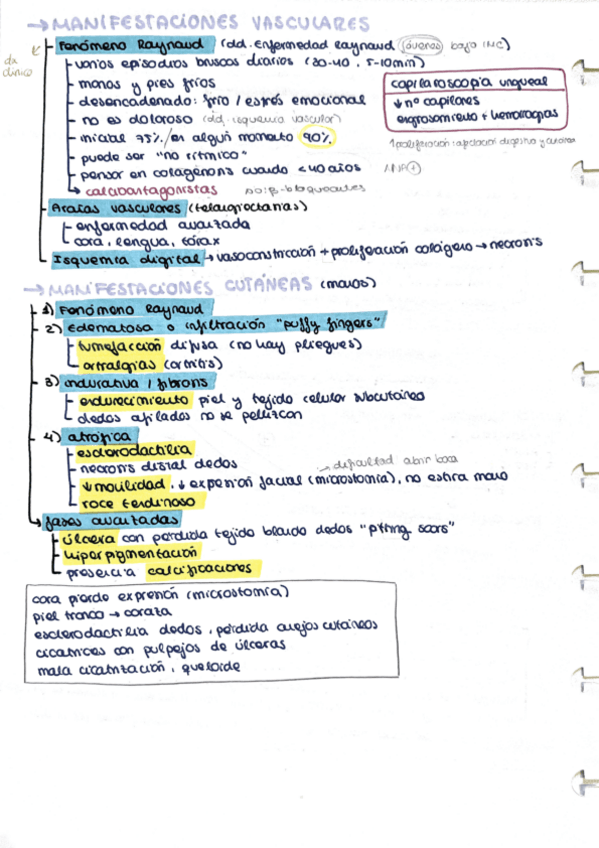 → MANIFESTACIONES VASCULARES
dx clínico
Fenómeno Raynaud (dd. Enfermedad Raynaud (jóvenes) bajo IMC)
varios episodios bruscos diarios (30-40, 5-10min)
manos y pies fríos
desencadenado: frío / estrés emocional
no es doloroso (dd. isquemia vascular)
inicial 75% / en algún momento 90%
puede ser "no rítmico"
pensar en colagenosis cuando <40 años ANA(+)
↳ calcioantagonistas NO: β-bloqueantes
capilaroscopia ungueal
↓ nº capilares
engrosamiento + hemorragias
Arañas vasculares (telangiectasias)
enfermedad avanzada
cara, lengua, tórax
Isquemia digital → vasoconstricción + proliferación colágeno → necrosis
→ MANIFESTACIONES CUTÁNEAS (manos)
1) Fenómeno Raynaud
2) Edematosa o infiltración "puffy fingers"
tumefacción difusa (no hay pliegues)
artralgias (artritis)
3) indurativa / fibrosis
endurecimiento piel y tejido celular subcutáneo
dedos afilados no se pellizcan
4) atrófica
esclerodactilia
necrosis distal dedos
→ dificultad abrir boca
↓ movilidad, ↓ expresión facial (microstomía), no estira mano
roce tendinoso
↳ fases avanzadas
úlcera con pérdida tejido blando dedos "pitting scars"
hiperpigmentación
presencia calcificaciones
cara pierde expresión (microstomía)
piel tronco → coraza
esclerodactilia dedos, pérdida anejos cutáneos
cicatrices con pulpejos de úlceras
mala cicatrización, queloide